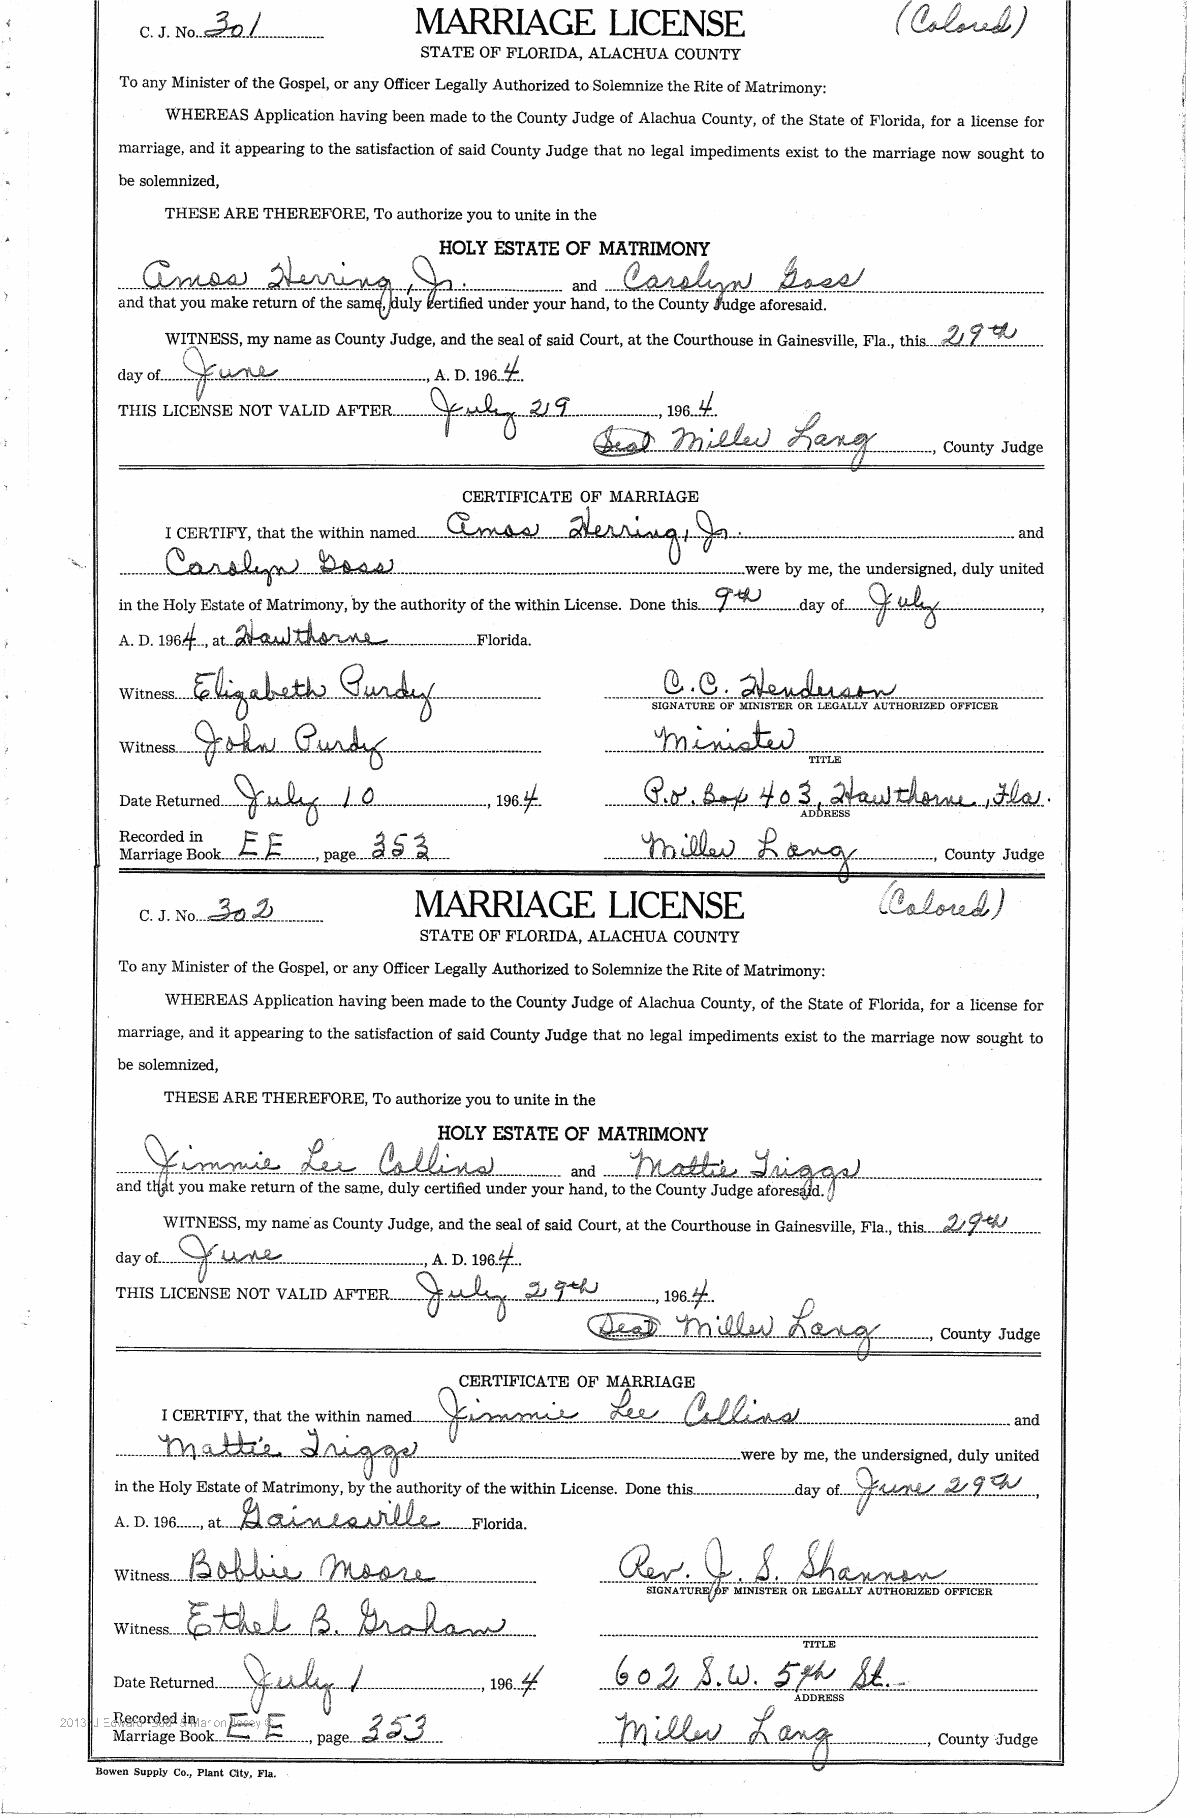 C. J. No. 301 MARRIAGE LICENSE (Colored)
STATE OF FLORIDA, ALACHUA COUNTY
To any Minister of the Gospel, or any Officer Legally Authorized to Solemnize the Rite of Matrimony:
WHEREAS Application having been made to the County Judge of Alachua County, of the State of Florida, for a license for
marriage, and it appearing to the satisfaction of said County Judge that no legal impediments exist to the marriage now sought to
be solemnized,
THESE ARE THEREFORE, To authorize you to unite in the
HOLY ESTATE OF MATRIMONY
Amos Herring, Jr. and Carolyn Goss
and that you make return of the same, duly certified under your hand, to the County Judge aforesaid.
WITNESS, my name as County Judge, and the seal of said Court, at the Courthouse in Gainesville, Fla., this 29th
day of June, A. D. 1964.
THIS LICENSE NOT VALID AFTER July 29, 1964.
Seal Miller Lang, County Judge
CERTIFICATE OF MARRIAGE
I CERTIFY, that the within named Amos Herring, Jr. and
Carolyn Goss were by me, the undersigned, duly united
in the Holy Estate of Matrimony, by the authority of the within License. Done this 9th day of July,
A. D. 1964, at Hawthorne Florida.
Witness Elizabeth Purdy C. C. Henderson
SIGNATURE OF MINISTER OR LEGALLY AUTHORIZED OFFICER
Witness John Purdy Minister
TITLE
Date Returned July 10, 1964 P.O. Box 403, Hawthorne, Fla.
ADDRESS
Recorded in
Marriage Book EE, page 353 Miller Lang, County Judge
C. J. No. 302 MARRIAGE LICENSE (Colored)
STATE OF FLORIDA, ALACHUA COUNTY
To any Minister of the Gospel, or any Officer Legally Authorized to Solemnize the Rite of Matrimony:
WHEREAS Application having been made to the County Judge of Alachua County, of the State of Florida, for a license for
marriage, and it appearing to the satisfaction of said County Judge that no legal impediments exist to the marriage now sought to
be solemnized,
THESE ARE THEREFORE, To authorize you to unite in the
HOLY ESTATE OF MATRIMONY
Jimmie Lee Collins and Mattie Triggs
and that you make return of the same, duly certified under your hand, to the County Judge aforesaid.
WITNESS, my name as County Judge, and the seal of said Court, at the Courthouse in Gainesville, Fla., this 29th
day of June, A. D. 1964.
THIS LICENSE NOT VALID AFTER July 29th, 1964.
Seal Miller Lang, County Judge
CERTIFICATE OF MARRIAGE
I CERTIFY, that the within named Jimmie Lee Collins and
Mattie Triggs were by me, the undersigned, duly united
in the Holy Estate of Matrimony, by the authority of the within License. Done this day of June 29th,
A. D. 196, at Gainesville Florida.
Witness Bobbie Moore Rev. J. S. Shannon
SIGNATURE OF MINISTER OR LEGALLY AUTHORIZED OFFICER
Witness Ethel B. Graham
TITLE
Date Returned July 1, 1964 602 S.W. 5th St.
ADDRESS
Recorded in
2013 J Edward
Marriage Book EE, page 353 Miller Lang, County Judge
Bowen Supply Co., Plant City, Fla.